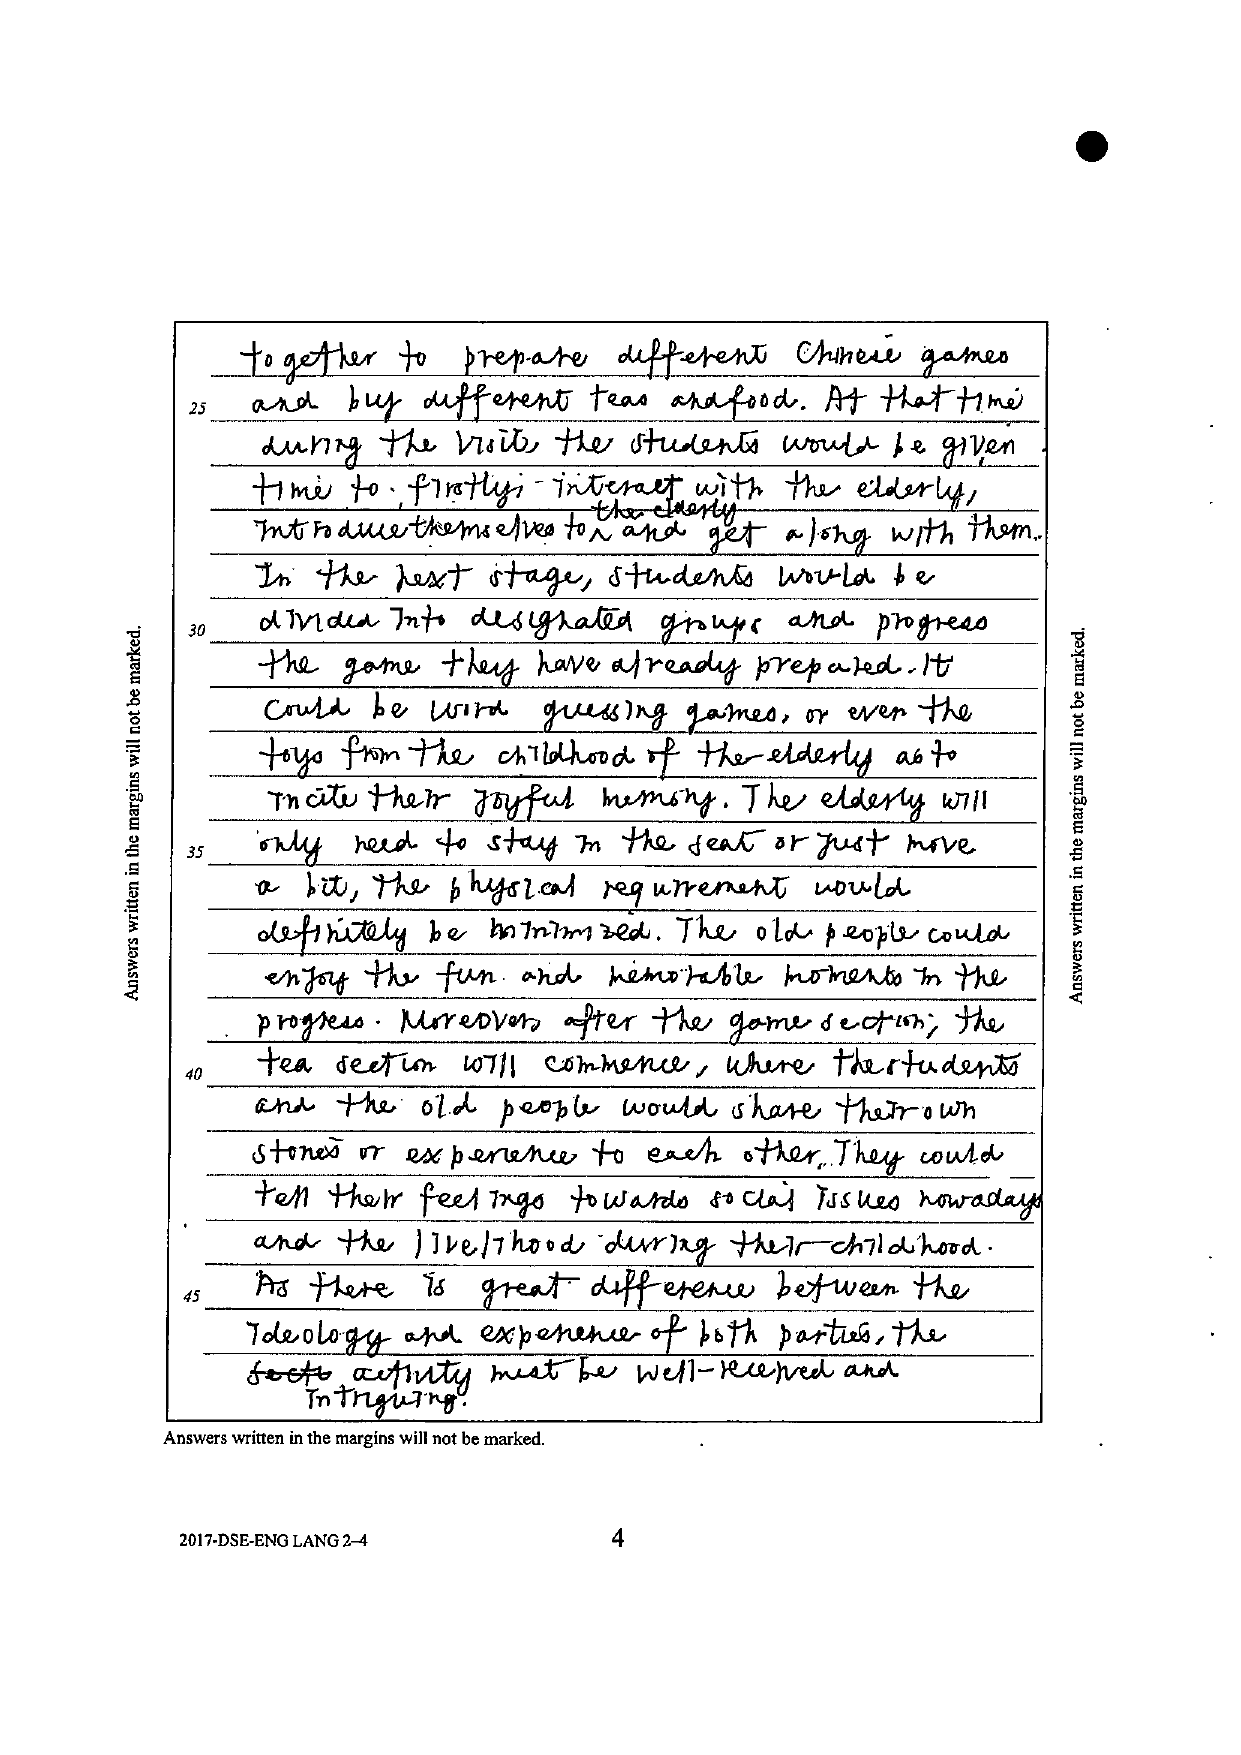 together to prepare different Chinese games
25 and buy different teas and food. At that time
during the visit, the students would be given
time to, firstly, interact with the elderly,
the elderly
introduce themselves to ^ and get along with them.
In the next stage, students would be
30 divided into designated groups and progress
the game they have already prepared. It
could be word guessing games, or even the
toys from the childhood of the elderly as to
incite their joyful memory. The elderly will
35 only need to stay in the seat or just move
a bit, the physical requirement would
definitely be minimized. The old people could
enjoy the fun and memorable moments in the
progress. Moreover, after the game section, the
40 tea section will commence, where the students
and the old people would share their own
stories or experience to each other. They could
tell their feelings towards social issues nowadays
and the livelihood during their childhood.
45 As there is great difference between the
ideology and experience of both parties, the
activity must be well-received and
intriguing.
Answers written in the margins will not be marked.
Answers written in the margins will not be marked.
Answers written in the margins will not be marked.
2017-DSE-ENG LANG 2–4
4